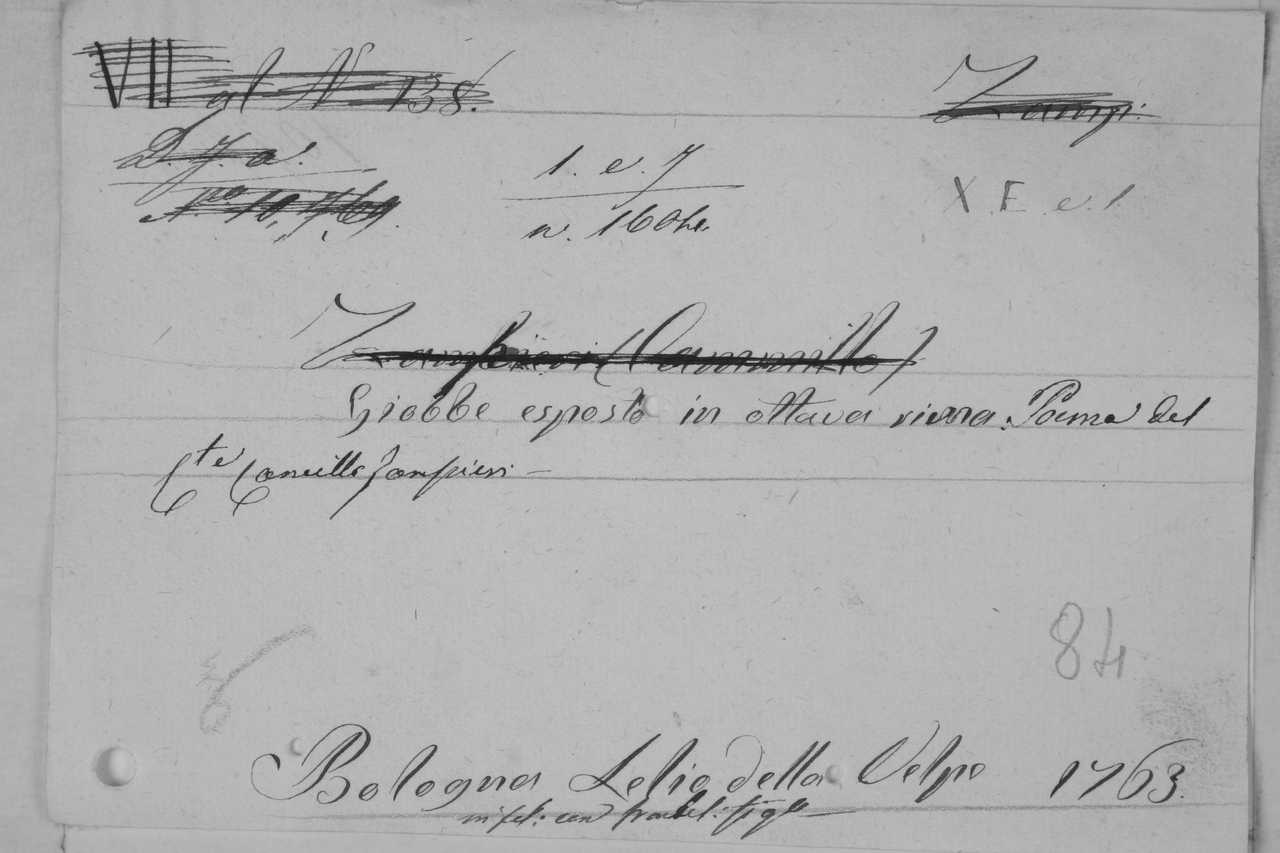 VII al N 138.
Zampi.
D. J. a.
Nro 10,769.
1. e. 7
n. 160
X. E. e. 1
Zampieri (Cammillo)
Giobbe esposto in ottava rima. Poema del
Cte Camillo Zampieri -
84
Bologna Lelio della Volpe 1763.
in fol: con figle